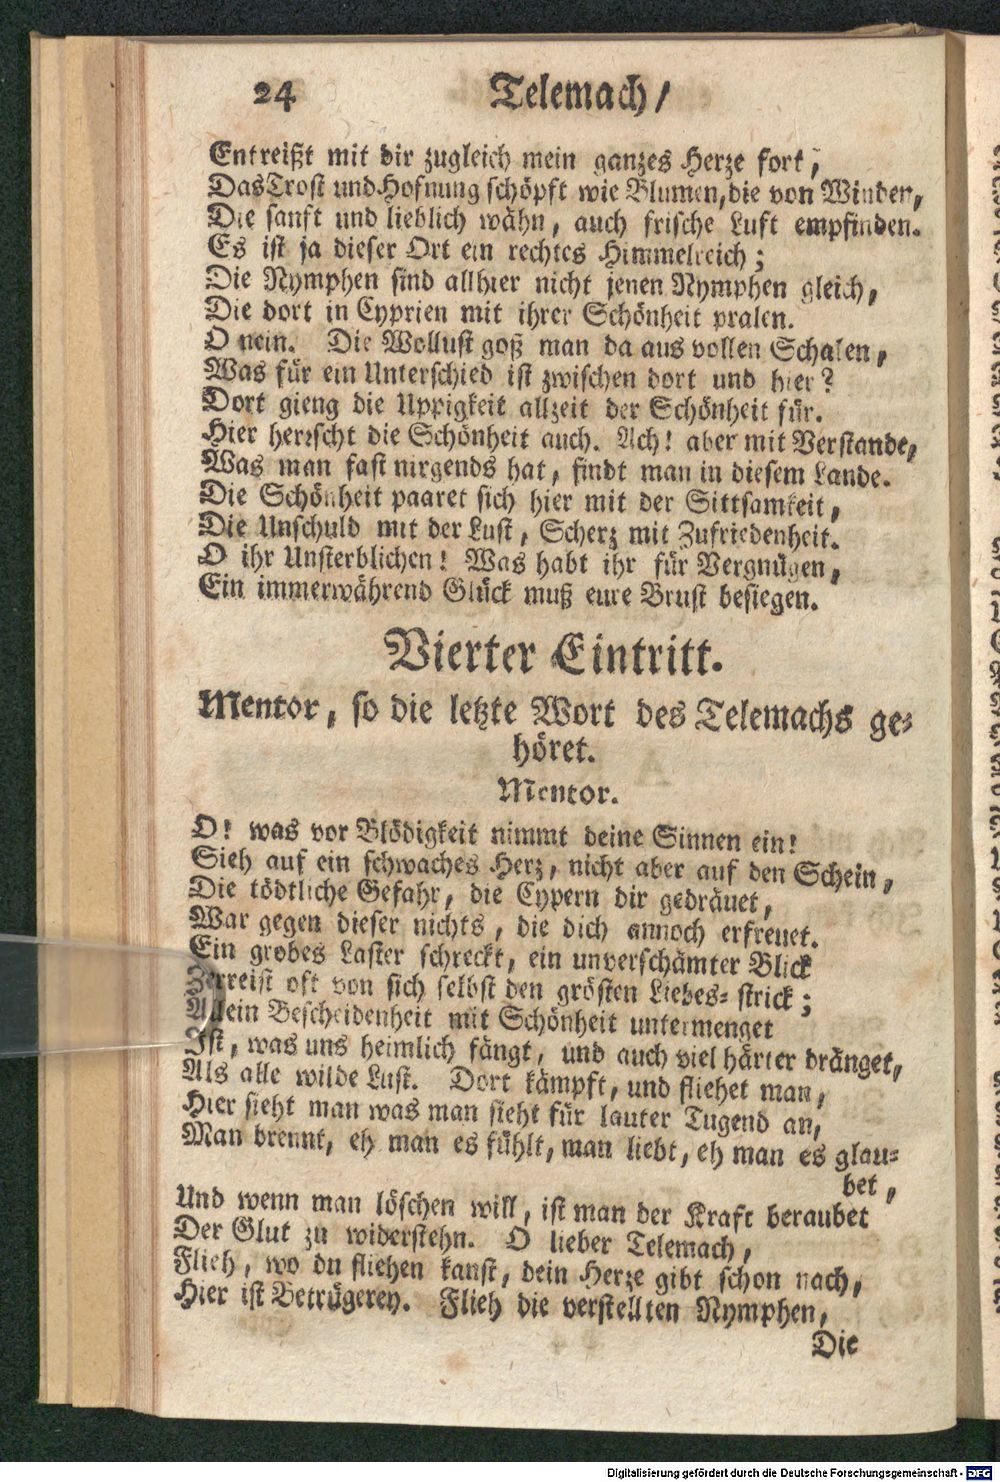 24 Telemach/
Entreißt mit dir zugleich mein ganzes Herze fort,
Das Trost und Hofnung schöpft wie Blumen, die von Winden,
Die sanft und lieblich wähn, auch frische Luft empfinden.
Es ist ja dieser Ort ein rechtes Himmelreich;
Die Nymphen sind allhier nicht jenen Nymphen gleich,
Die dort in Cyprien mit ihrer Schönheit pralen.
O nein. Die Wollust goß man da aus vollen Schalen,
Was für ein Unterschied ist zwischen dort und hier?
Dort gieng die Uppigkeit allzeit der Schönheit für.
Hier herrscht die Schönheit auch. Ach! aber mit Verstande,
Was man fast nirgends hat, findt man in diesem Lande.
Die Schönheit paaret sich hier mit der Sittsamkeit,
Die Unschuld mit der Lust, Scherz mit Zufriedenheit.
O ihr Unsterblichen! Was habt ihr für Vergnügen,
Ein immerwährend Glück muß eure Brust besiegen.
Vierter Eintritt.
Mentor, so die letzte Wort des Telemachs ge-
höret.
Mentor.
O! was vor Blödigkeit nimmt deine Sinnen ein!
Sieh auf ein schwaches Herz, nicht aber auf den Schein,
Die tödtliche Gefahr, die Cypern dir gedräuet,
War gegen dieser nichts, die dich annoch erfreuet.
Ein grobes Laster schreckt, ein unverschämter Blick
Zerreist oft von sich selbst den grösten Liebes-strick;
Allein Bescheidenheit mit Schönheit untermenget
Ist, was uns heimlich fängt, und auch viel härter dränget,
Als alle wilde Lust. Dort kämpft, und fliehet man,
Hier sieht man was man sieht für lauter Tugend an,
Man brennt, eh man es fühlt, man liebt, eh man es glau-
bet,
Und wenn man löschen will, ist man der Kraft beraubet
Der Glut zu widerstehn. O lieber Telemach,
Flieh, wo du fliehen kanst, dein Herze gibt schon nach,
Hier ist Betrügerey. Flieh die verstellten Nymphen,
Die
Digitalisierung gefördert durch die Deutsche Forschungsgemeinschaft - DFG